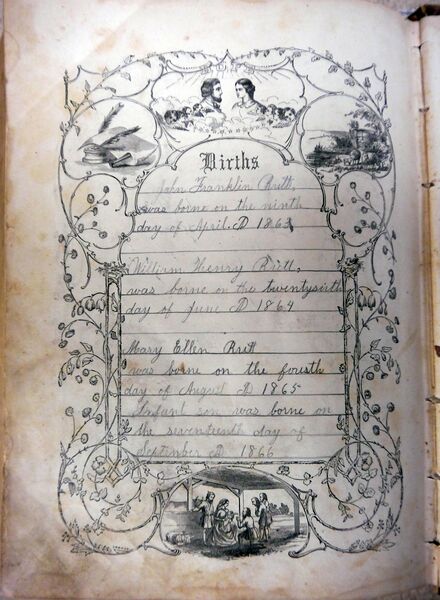 Births
John Franklin Rutt,
was borne on the ninth
day of April AD 1863
William Henry Rutt,
was borne on the twentysixth
day of June AD 1864
Mary Ellen Rutt
was borne on the fourth
day of August AD 1865
Infant son was borne on
the seventeenth day of
September AD 1866